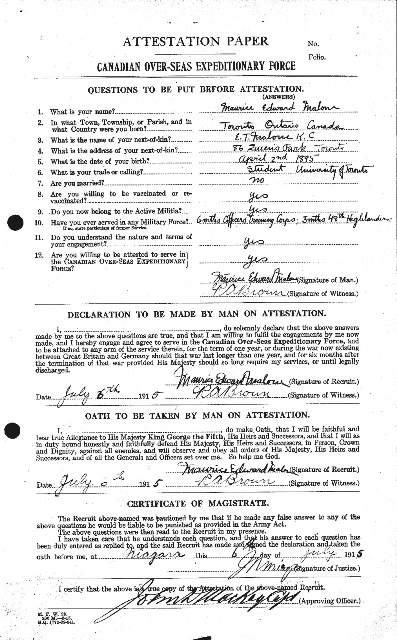 ATTESTATION PAPER
No.
Folio.
CANADIAN OVER-SEAS EXPEDITIONARY FORCE
QUESTIONS TO BE PUT BEFORE ATTESTATION.
(ANSWERS)
1. What is your name? Maurice Edward Malone
2. In what Town, Township, or Parish, and in
what Country were you born? Toronto Ontario Canada
3. What is the name of your next-of-kin? E.T. Malone K.C
4. What is the address of your next-of-kin? 86 Queens Park Toronto
5. What is the date of your birth? April 2nd 1895
6. What is your trade or calling? Student University of Toronto
7. Are you married? no
8. Are you willing to be vaccinated or re-
vaccinated? yes
9. Do you now belong to the Active Militia? yes
10. Have you ever served in any Military Force? 6 mths Officers Training Corps; 3 mths 48th Highlanders
If so, state particulars of former Service.
11. Do you understand the nature and terms of
your engagement? yes
12. Are you willing to be attested to serve in
the CANADIAN OVER-SEAS EXPEDITIONARY
FORCE? yes
Maurice Edward Malone (Signature of Man.)
R A Brown (Signature of Witness.)
DECLARATION TO BE MADE BY MAN ON ATTESTATION.
I, , do solemnly declare that the above answers
made by me to the above questions are true, and that I am willing to fulfil the engagements by me now
made, and I hereby engage and agree to serve in the Canadian Over-Seas Expeditionary Force, and to
be attached to any arm of the service therein, for the term of one year, or during the war now existing
between Great Britain and Germany should that war last longer than one year, and for six months after
the termination of that war provided His Majesty should so long require my services, or until legally
discharged.
Maurice Edward Malone (Signature of Recruit.)
Date July 6th 1915 R A Brown (Signature of Witness.)
OATH TO BE TAKEN BY MAN ON ATTESTATION.
I, , do make Oath, that I will be faithful and
bear true Allegiance to His Majesty King George the Fifth, His Heirs and Successors, and that I will as
in duty bound honestly and faithfully defend His Majesty, His Heirs and Successors, in Person, Crown
and Dignity, against all enemies, and will observe and obey all orders of His Majesty, His Heirs
and Successors, and of all the Generals and Officers set over me. So help me God.
Maurice Edward Malone (Signature of Recruit.)
Date July 6th 1915 R A Brown (Signature of Witness.)
CERTIFICATE OF MAGISTRATE.
The Recruit above-named was cautioned by me that if he made any false answer to any of the
above questions he would be liable to be punished as provided in the Army Act.
The above questions were then read to the Recruit in my presence.
I have taken care that he understands each question, and that his answer to each question has
been duly entered as replied to, and the said Recruit has made and signed the declaration and taken the
oath before me, at Niagara this 6 day of July 1915
(Signature of Justice.)
I certify that the above is a true copy of the Attestation of the above-named Recruit.
(Approving Officer.)